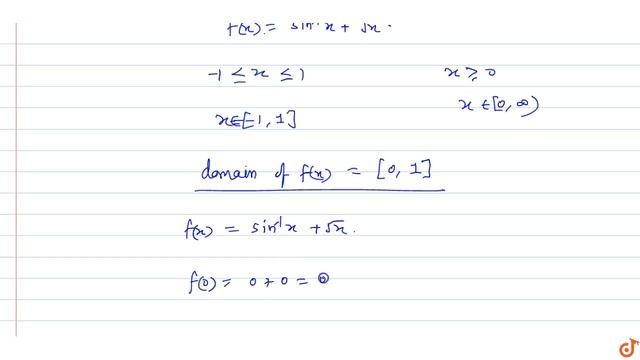 f(x) = sin⁻¹x + √x.
-1 ≤ x ≤ 1 x ≥ 0
x∈[-1, 1] x ∈[0, ∞)
domain of f(x) = [0, 1]
f(x) = sin⁻¹x + √x.
f(0) = 0 + 0 = 0